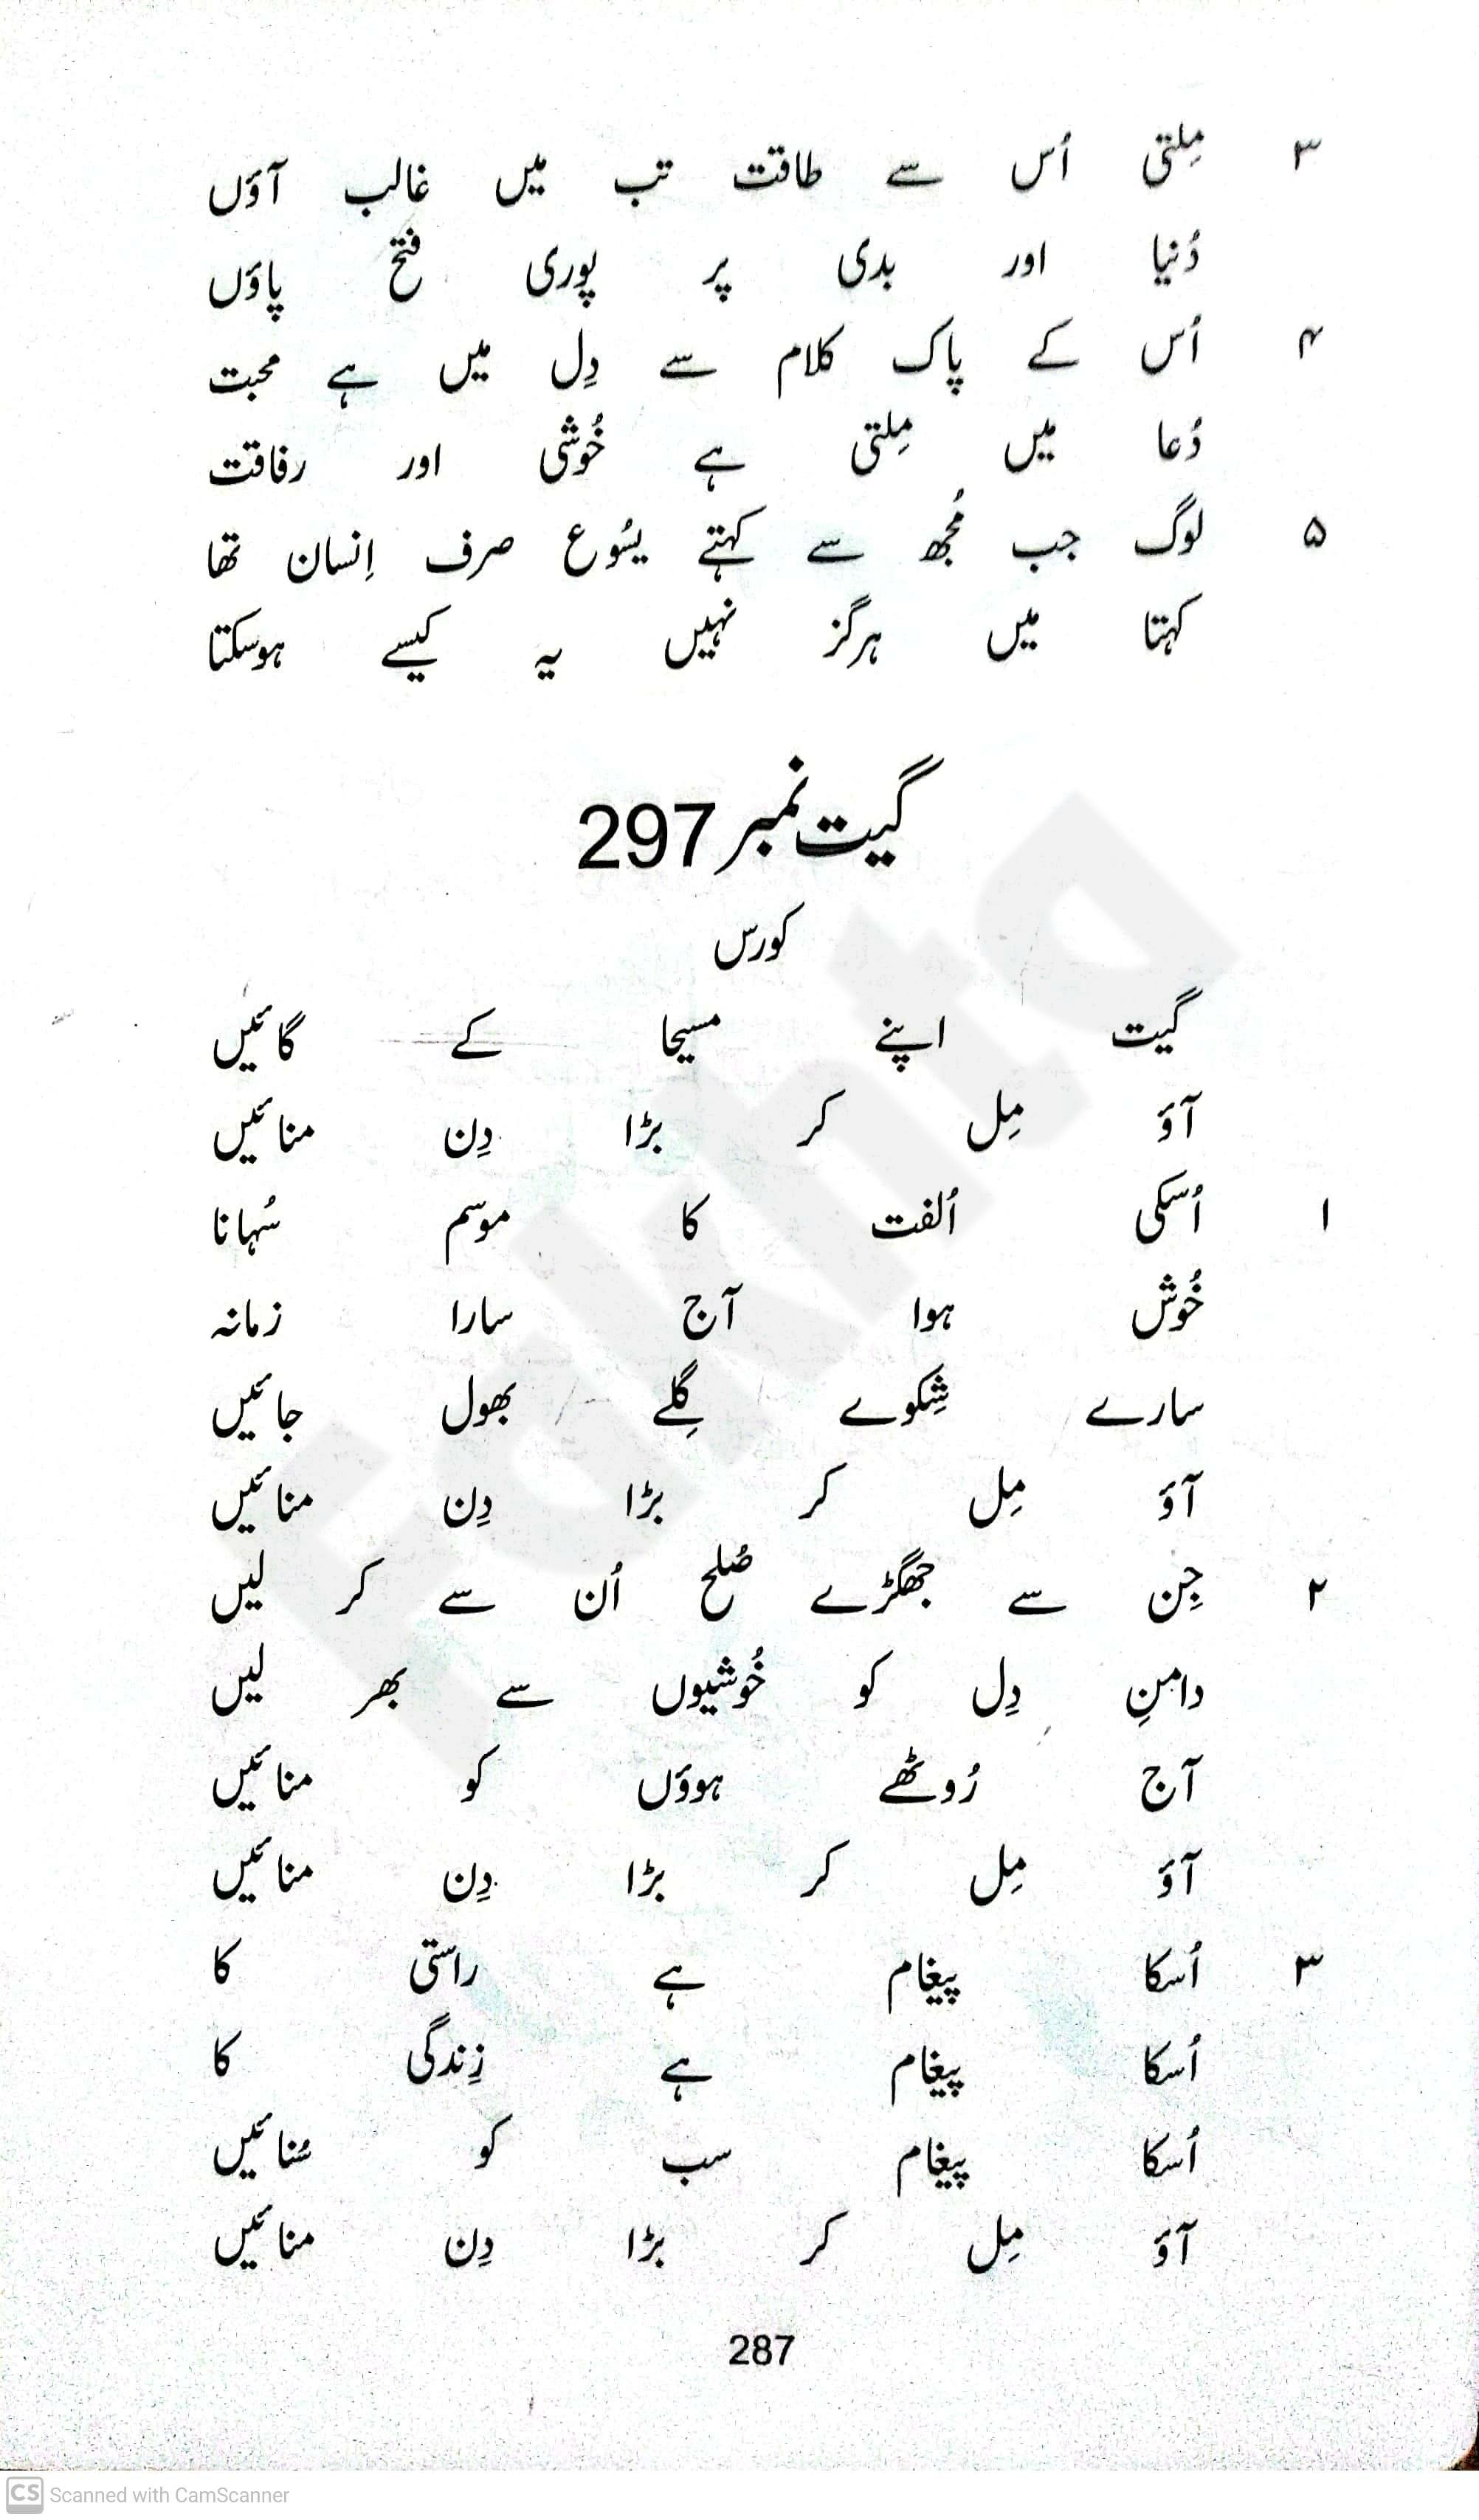 ۳ مِلتی اُس سے طاقت تب میں غالب آؤں
دُنیا اور بدی پر پوری فتح پاؤں
۴ اُس کے پاک کلام سے دِل میں ہے محبت
دُعا میں مِلتی ہے خُوشی اور رفاقت
۵ لوگ جب مُجھ سے کہتے یسُوع صرف اِنسان تھا
کہتا میں ہرگز نہیں یہ کیسے ہوسکتا
گیت نمبر 297
کورس
گیت اپنے مسیحا کے گائیں
آؤ مِل کر بڑا دِن منائیں
۱ اُسکی اُلفت کا موسم سُہانا
خُوش ہوا آج سارا زمانہ
سارے شِکوے گِلے بھول جائیں
آؤ مِل کر بڑا دِن منائیں
۲ جِن سے جھگڑے صُلح اُن سے کر لیں
دامنِ دِل کو خُوشیوں سے بھر لیں
آج رُوٹھے ہوؤں کو منائیں
آؤ مِل کر بڑا دِن منائیں
۳ اُسکا پیغام ہے راستی کا
اُسکا پیغام ہے زِندگی کا
اُسکا پیغام سب کو سُنائیں
آؤ مِل کر بڑا دِن منائیں
287
Fakhta
CS Scanned with CamScanner